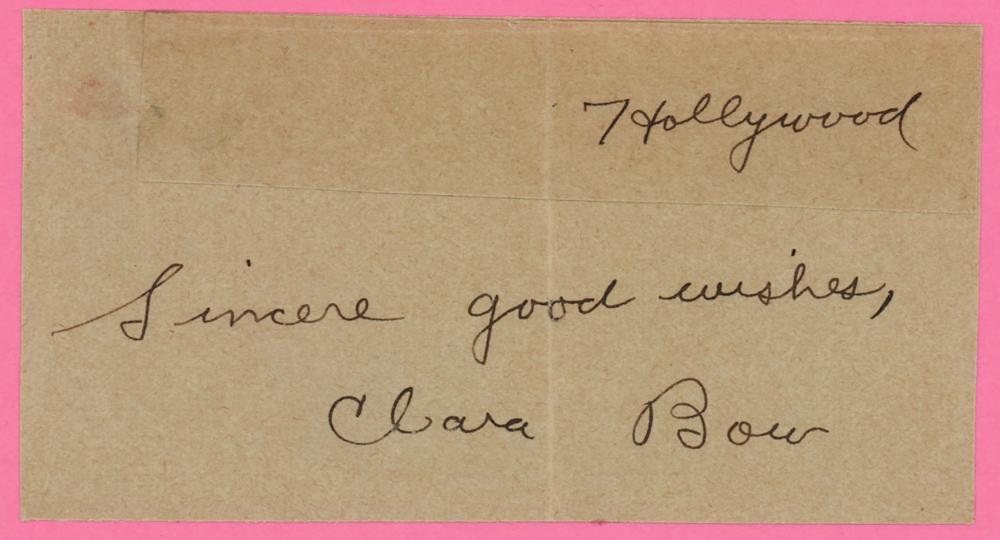 Hollywood
Sincere good wishes,
Clara Bow